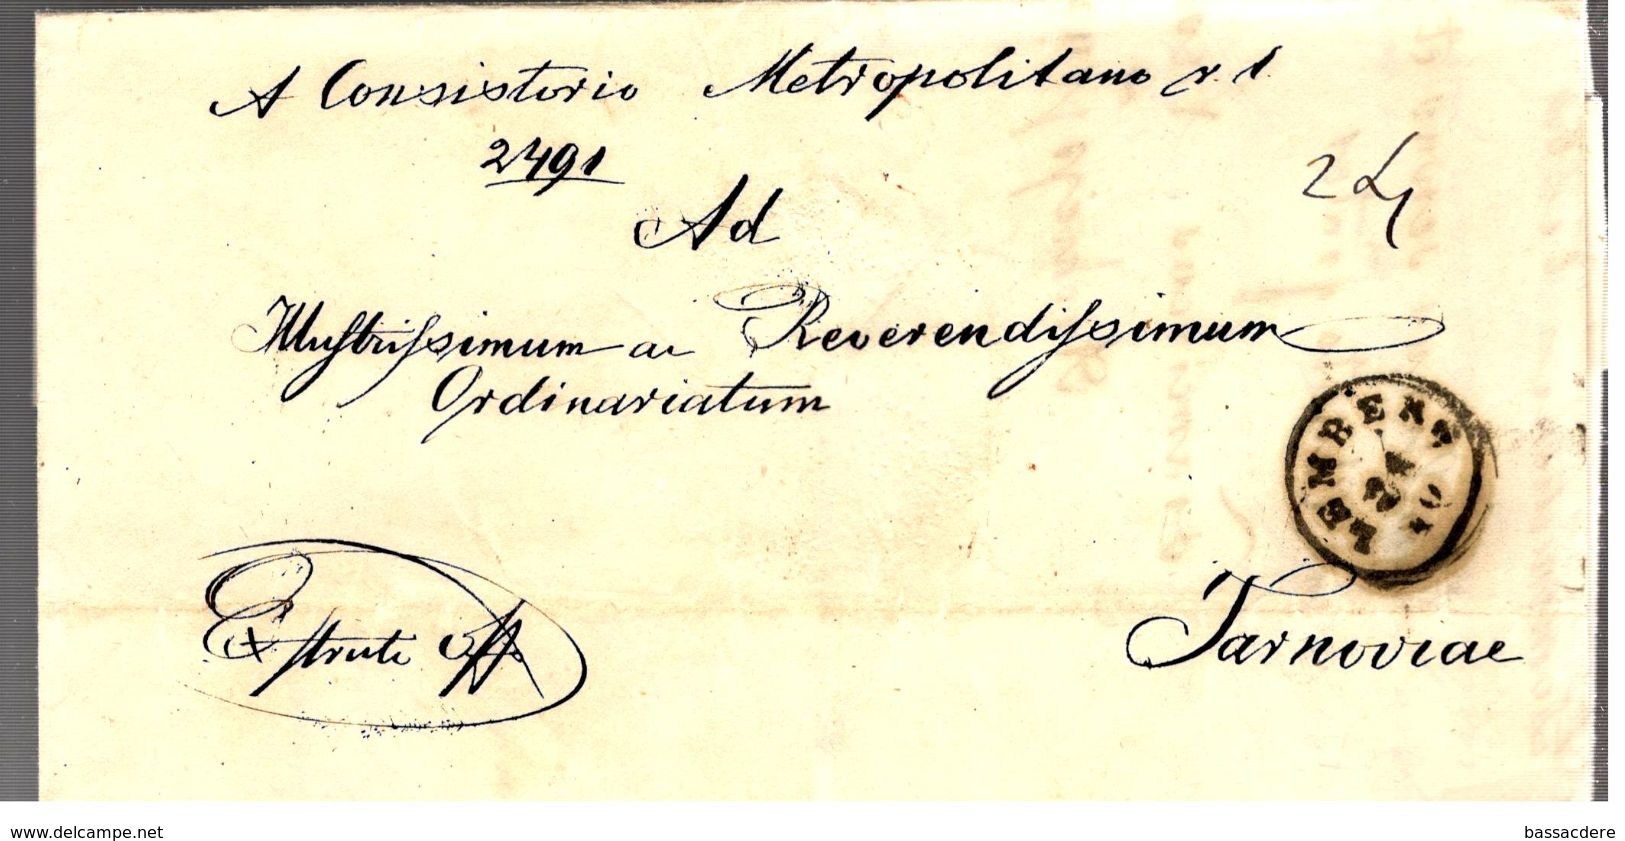 A Consistorio Metropolitano r. l.
2491
Ad
Illustrissimum ac Reverendissimum
Ordinariatum
LEMBERG
24
Ex offo
Tarnoviae
www.delcampe.net
bassacdere